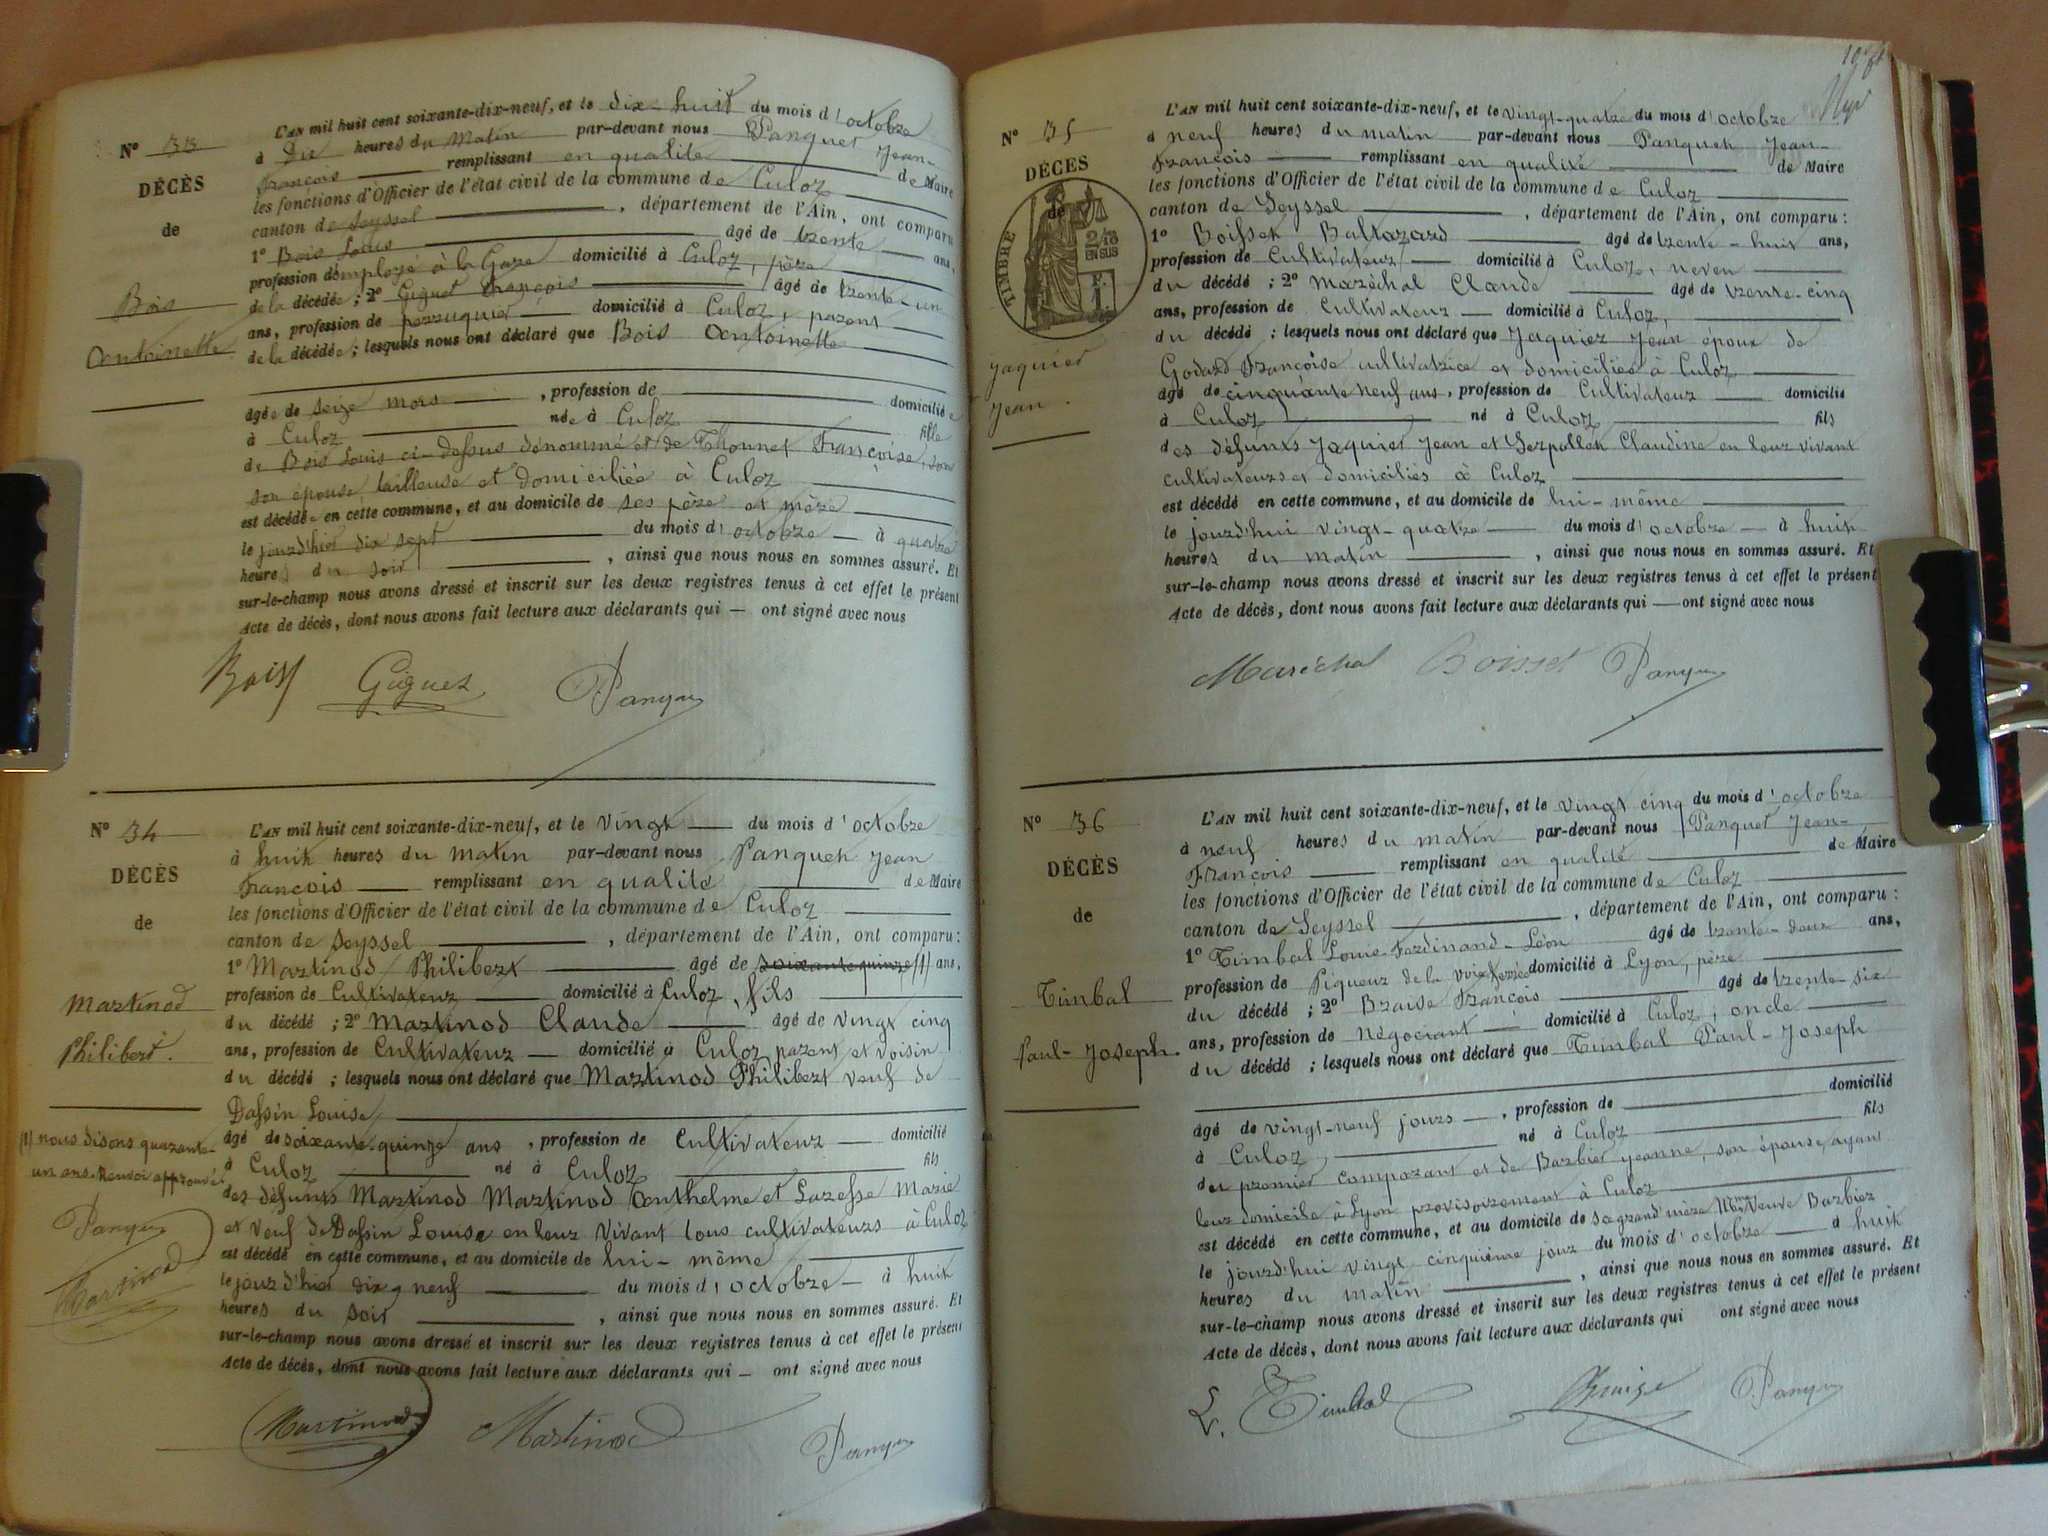 N° 33
DÉCÈS
de
Bois
Antoinette
L'AN mil huit cent soixante-dix-neuf, et le dix-huit du mois d'octobre
à Dix heures du Matin par-devant nous Panquet Jean-
François remplissant en qualité de Maire
les fonctions d'Officier de l'état civil de la commune de Culoz
canton de Seyssel, département de l'Ain, ont comparu
1° Bois Louis âgé de trente ans,
profession d'employé à la Gare domicilié à Culoz, père
de la décédée; 2° Giguet François âgé de trente-un
ans, profession de perruquier domicilié à Culoz, parent
de la décédée; lesquels nous ont déclaré que Bois Antoinette
âgée de seize mois, profession de domiciliée
à Culoz née à Culoz fille
de Bois Louis ci-dessus dénommé et de Thonnet Françoise, son
son épouse, tailleuse et domiciliée à Culoz
est décédée en cette commune, et au domicile de ses père et mère
le jourd'hier dix sept du mois d'octobre à quatre
heures du soir, ainsi que nous nous en sommes assuré. Et
sur-le-champ nous avons dressé et inscrit sur les deux registres tenus à cet effet le présent
Acte de décès, dont nous avons fait lecture aux déclarants qui — ont signé avec nous
Bois Giguet Panquet
N° 34
DÉCÈS
de
Martinod
Philibert.
(1) nous disons quarante-
un ans. Renvoi approuvé
Panquet
Martinod
L'AN mil huit cent soixante-dix-neuf, et le vingt du mois d'octobre
à huit heures du matin par-devant nous Panquet Jean
François remplissant en qualité de Maire
les fonctions d'Officier de l'état civil de la commune de Culoz
canton de Seyssel, département de l'Ain, ont comparu:
1° Martinod Philibert âgé de soixante quinze (1) ans,
profession de Cultivateur domicilié à Culoz, fils
du décédé; 2° Martinod Claude âgé de vingt cinq
ans, profession de Cultivateur domicilié à Culoz parent et voisin
du décédé; lesquels nous ont déclaré que Martinod Philibert veuf de
Dassin Louise
âgé de soixante-quinze ans, profession de Cultivateur domicilié
à Culoz né à Culoz fils
des défunts Martinod Martinod Anthelme et Lazesse Marie
et veuf de Dassin Louise en leur vivant tous cultivateurs à Culoz
est décédé en cette commune, et au domicile de lui-même
le jourd'hier dix-neuf du mois d'octobre à huit
heures du soir, ainsi que nous nous en sommes assuré. Et
sur-le-champ nous avons dressé et inscrit sur les deux registres tenus à cet effet le présent
Acte de décès, dont nous avons fait lecture aux déclarants qui — ont signé avec nous
Martinod Martinod Panquet
N° 35
DÉCÈS
de
TIMBRE
2/10
EN SUS
Jaquier
Jean.
L'AN mil huit cent soixante-dix-neuf, et le vingt-quatre du mois d'octobre
à neuf heures du matin par-devant nous Panquet Jean-
François remplissant en qualité de Maire
les fonctions d'Officier de l'état civil de la commune de Culoz
canton de Seyssel, département de l'Ain, ont comparu:
1° Boisset Baltazard âgé de trente-huit ans,
profession de Cultivateur domicilié à Culoz, neveu
du décédé; 2° Maréchal Claude âgé de trente-cinq
ans, profession de Cultivateur domicilié à Culoz,
du décédé; lesquels nous ont déclaré que Jaquier Jean époux de
Godard Françoise cultivatrice et domiciliée à Culoz
âgé de cinquante neuf ans, profession de Cultivateur domicilié
à Culoz né à Culoz fils
des défunts Jaquier Jean et Serpollet Claudine en leur vivant
cultivateurs et domiciliés à Culoz
est décédé en cette commune, et au domicile de lui-même
le jourd'hui vingt-quatre du mois d'octobre à huit
heures du matin, ainsi que nous nous en sommes assuré. Et
sur-le-champ nous avons dressé et inscrit sur les deux registres tenus à cet effet le présent
Acte de décès, dont nous avons fait lecture aux déclarants qui — ont signé avec nous
Maréchal Boisset Panquet
N° 36
DÉCÈS
de
Timbal
Paul-Joseph.
L'AN mil huit cent soixante-dix-neuf, et le vingt cinq du mois d'octobre
à neuf heures du matin par-devant nous Panquet Jean-
François remplissant en qualité de Maire
les fonctions d'Officier de l'état civil de la commune de Culoz
canton de Seyssel, département de l'Ain, ont comparu:
1° Timbal Louis-Ferdinand-Léon âgé de trente-deux ans,
profession de Piqueur de la voie ferrée domicilié à Lyon, père
du décédé; 2° Braise François âgé de trente-six
ans, profession de Négociant domicilié à Culoz, oncle
du décédé; lesquels nous ont déclaré que Timbal Paul-Joseph
âgé de vingt-neuf jours, profession de domicilié
à Culoz, né à Culoz fils
du premier comparant et de Barbier Jeanne, son épouse, ayant
leur domicile à Lyon provisoirement à Culoz
est décédé en cette commune, et au domicile de sa grand'mère Mme Veuve Barbier
le jourd'hui vingt cinquième jour du mois d'octobre à huit
heures du matin, ainsi que nous nous en sommes assuré. Et
sur-le-champ nous avons dressé et inscrit sur les deux registres tenus à cet effet le présent
Acte de décès, dont nous avons fait lecture aux déclarants qui ont signé avec nous
L. Timbal Braise Panquet